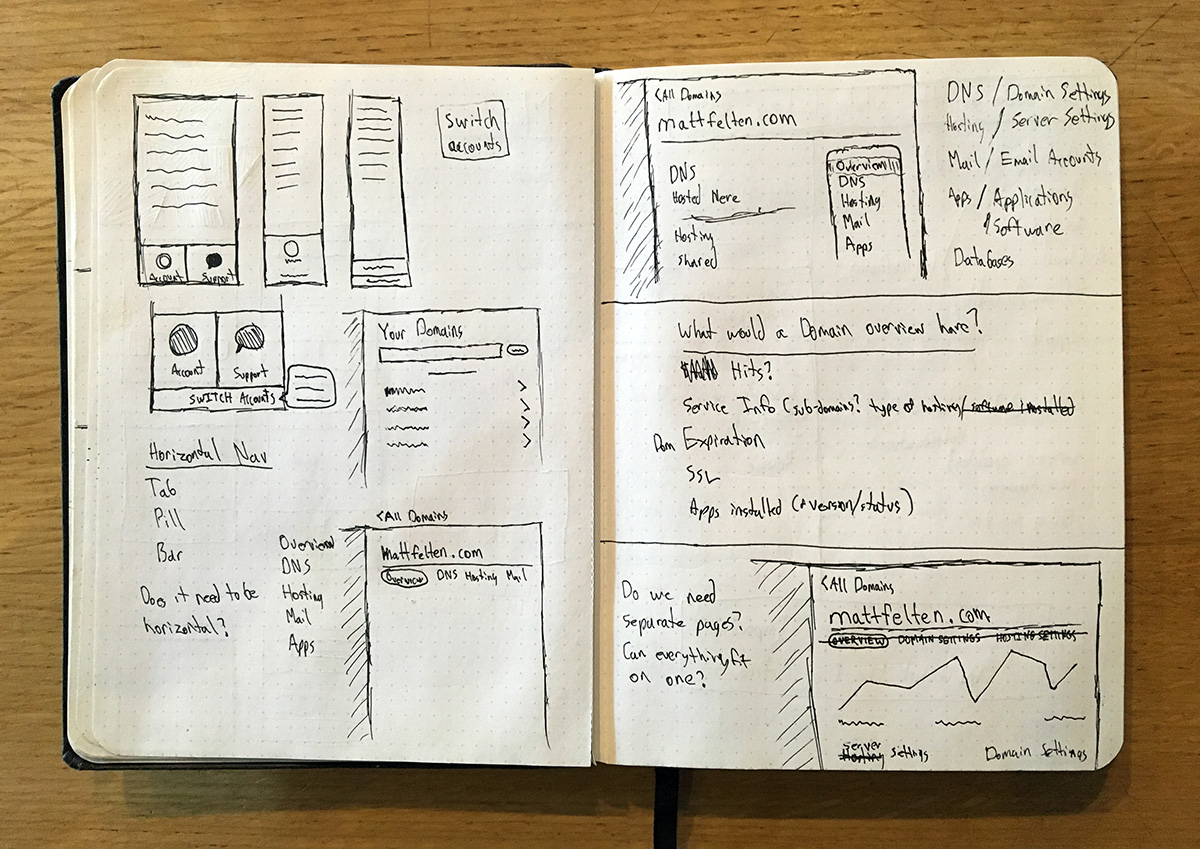 Switch
accounts
Account
Support
Account
Support
SWITCH Accounts
Your Domains
Horizontal Nav
Tab
Pill
Bar
Does it need to be
horizontal?
Overview
DNS
Hosting
Mail
Apps
<All Domains
mattfelten.com
Overview DNS Hosting Mail
<All Domains
mattfelten.com
DNS
Hosted Here
Hosting
Shared
Overview
DNS
Hosting
Mail
Apps
DNS / Domain Settings
Hosting / Server Settings
Mail / Email Accounts
Apps / Applications
& Software
Databases
What would a Domain overview have?
Hits?
Service Info (sub-domains? type of hosting/ software installed
Dom Expiration
SSL
Apps installed (& version/status)
Do we need
separate pages?
Can everything fit
on one?
<All Domains
mattfelten.com
OVERVIEW DOMAIN SETTINGS HOSTING SETTINGS
Server
Hosting Settings
Domain Settings